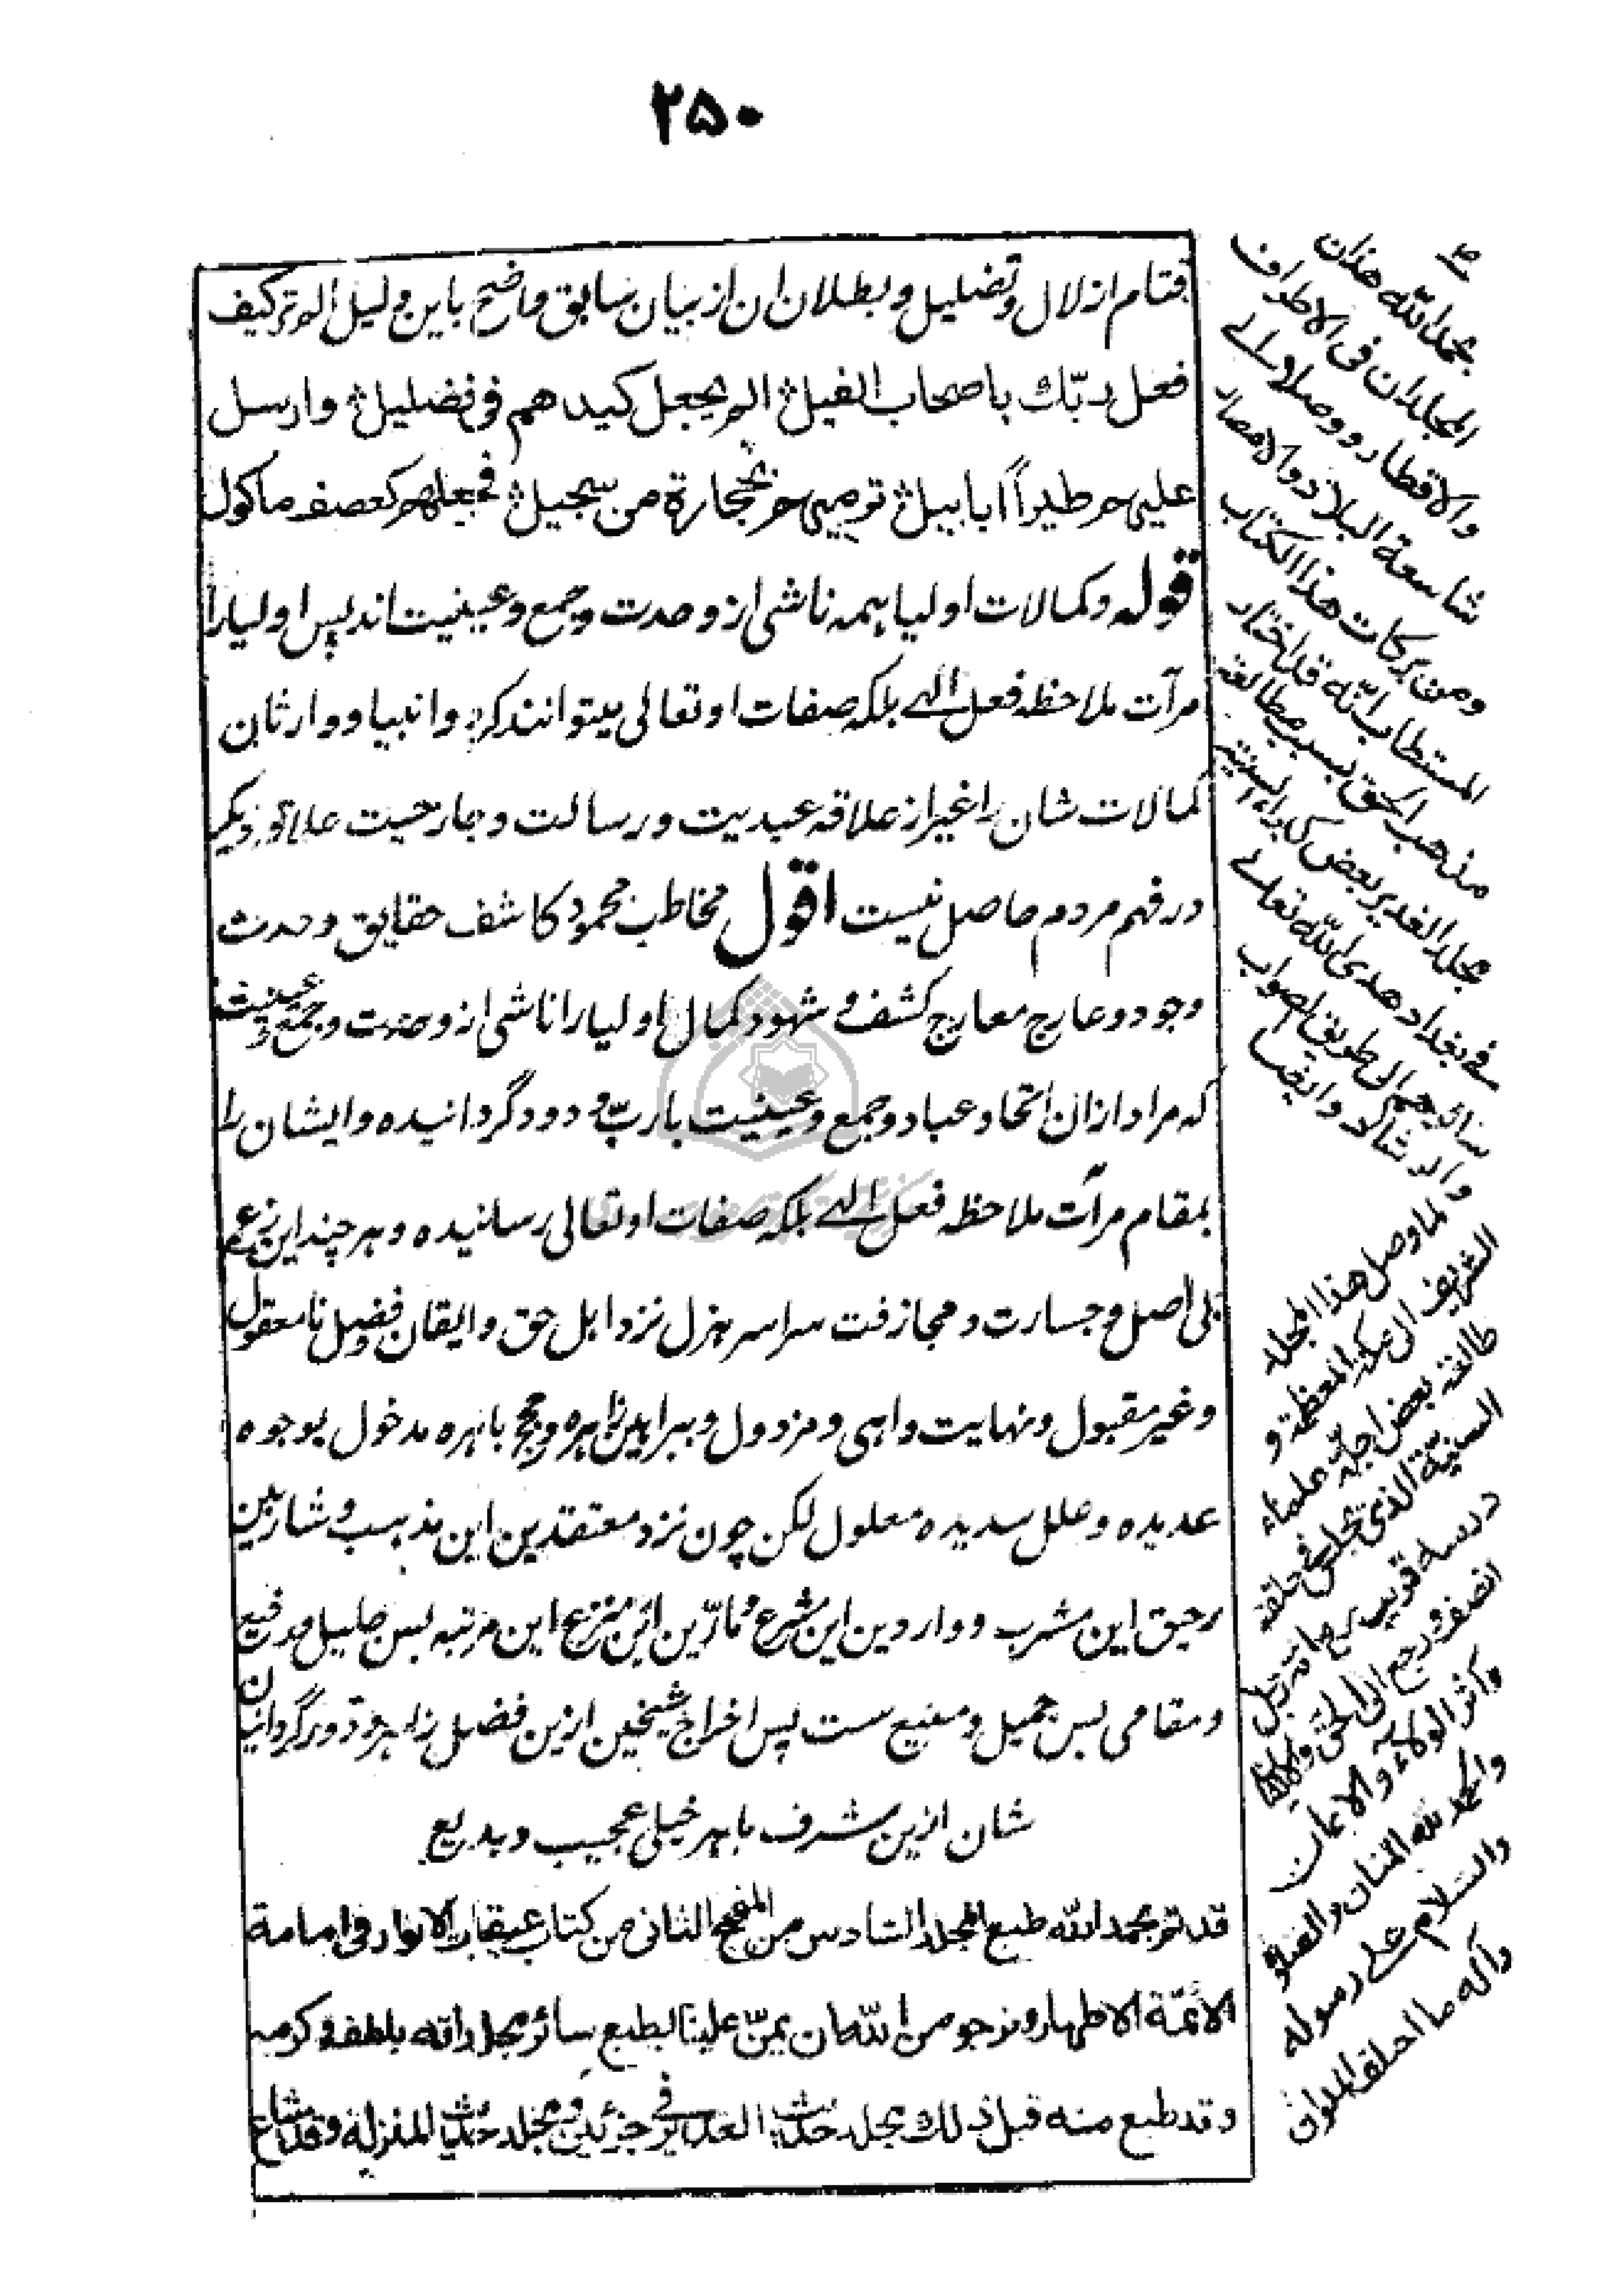 ۲۵۰
قتام ازلال و تضلیل و بطلان ان از بیان سابق واضح باین ولیل الم ترکیف
فعل ربّك باصحاب الفیل الم یجعل کیدهم فی تضلیل وارسل
علیهم طیراً ابابیل ترمیهم بحجارة من سجیل فجعلهم کعصف ماکول
قوله و کمالات اولیا همه ناشی از وحدت و جمع و عینیت اند پس اولیا را
مرآت ملاحظه فعل الهی بلکه صفات او تعالی میتوانند کرد و انبیا و وارثان
کمالات شان را غیر از علاقه عبدیت و رسالت و جارحیت علاقه دیگر
در فهم مردم حاصل نیست اقول مخاطب محمود کاشف حقایق وحدت
وجود و عارج معارج کشف و شهود کمال اولیا را ناشی از وحدت و جمع و عینیت
که مراد ازان اتحاد عباد و جمع و عینیت با ربّ ودود گردانیده و ایشان را
بمقام مرآت ملاحظه فعل الهی بلکه صفات او تعالی رسانیده و هر چند این زعم
بی اصل و جسارت و مجازفت سراسر هزل نزد اهل حق و ایقان و فضل نامعقول
و غیر مقبول و نهایت واهی و مرذول و ببراهین زاهره و حجج باهره مدخول بوجوه
عدیده و علل سدیده معلول لکن چون نزد معتقدین این مذهب و شاربین
رحیق این مشرب و واردین این مشرع و مارّین این منزع این مرتبه بس جلیل و رفیع
و مقامی بس جمیل و منیع ست پس اخراج شیخین ازین فضل زاهر و دور گردانیدن
شان ازین شرف باهر خیلی عجیب و بدیع
قد تم بحمد الله طبع المجلد السادس من المنهج الثانی من کتاب عبقات الانوار فی امامة
الأئمّة الاطهار ونرجو من الله ان یمنّ علینا بطبع سائر مجلداته بلطفه وکرمه
وقد طبع منه قبل ذلك مجلد حدیث الغدیر فی جزئین ومجلد حدیث المنزلة وقد شاع
بحمد الله هذان
المجلدان فی الاطراف
والاقطار ووصلا الی
شاسعة البلاد والامصار
ومن برکات هذا الکتاب
المستطاب انّه قد اختار
مذهب الحق بسبب مطالعة
مجلد الغدیر بعض کبراء السنّیة
فی بغداد هدی الله تعالی
سائرهم الی طریق الصواب
والرشاد وایضا
لما وصل هذا المجلد
الشریف الی مکة المعظمة و
طالعه بعض اجلّة علماء
السنیّة الذی یجلس فی حلقة
درسه قریب من مائة رجل
انصف ورجع الی الحق
واثر الولاء والایمان
والحمد لله المنان والصلوة
والسّلام علی رسوله
وآله ما اختلف الملوان